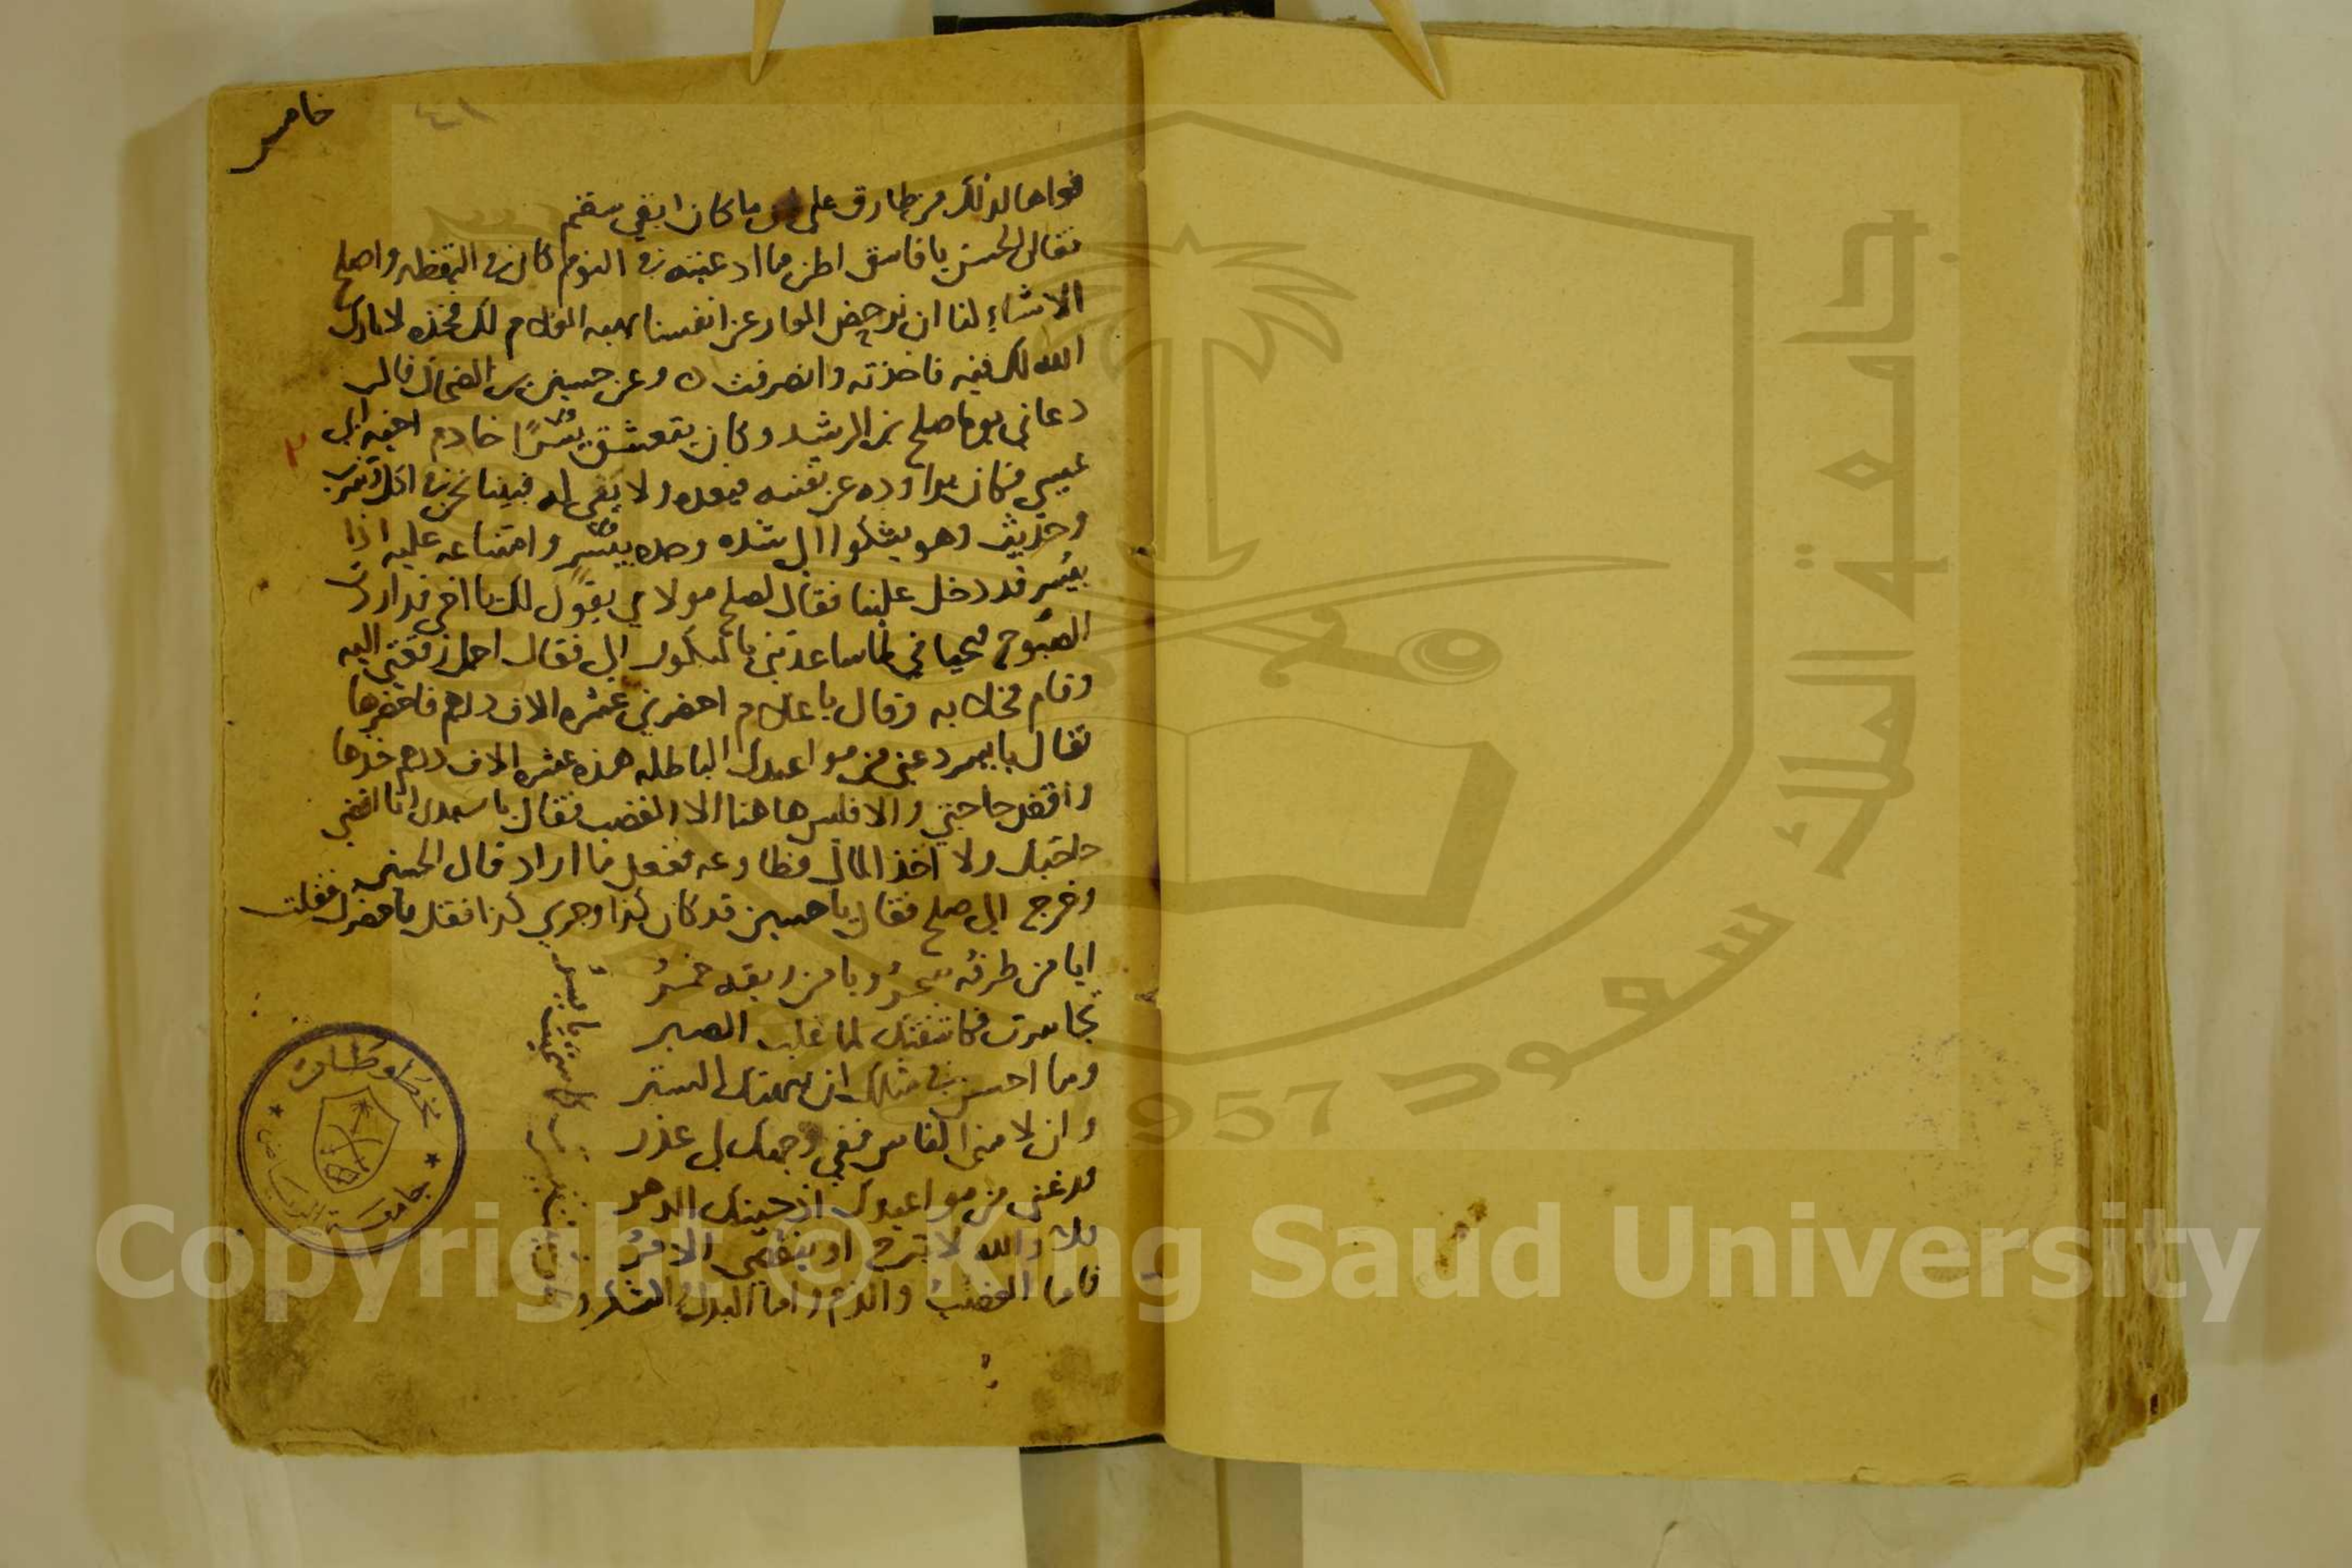 خامس
٤١
فواها لذلك من طارق على ان ما كان ابقى سقم
فقال الحسن يا فاسق اظن ما ادعيته في النوم كان في اليقظه واصلح
الاشياء لنا ان نرحض العار عن انفسنا بهبه الغلام لك فخذه لا بارك
الله لك فيه فاخذته وانصرفت وعن حسين بن الضحاك قال
دعاني يوما صلح بن الرشيد وكان يتعشق يسرا خادم اخيه ابي
عيسى فكان يراوده عن نفسه فيعده ولا يفي له فبينا نحن في اكل وشرب
وحديث وهو يشكوا الي شده وجده بيسر وامتناعه عليه اذا
بيسر قد دخل علينا فقال لصلح مولاي يقول لك يا اخي قد اردت
الصبوح فبحياتي لما ساعدتني بالبكور الي فقال احمل رفقتي اليه
وقام فخلا به وقال يا غلام احضرني عشره الاف درهم فاحضرها
فقال يا يسر دعني من مواعيدك الباطله هذه عشره الاف درهم خذها
واقض حاجتي والا فليس هاهنا الا الغضب فقال يا سيدي انا اقضي
حاجتك ولا اخذ المال فطاوعه ففعل ما اراد قال الحسين
وخرج الي صلح فقال يا حسين قد كان كذا وجرى كذا فقل ما حضرك فقلت
ايا من طرفه سحر ويا من ريقه خمر
تجاسرت فكاشفتك لما غلب الصبر
وما احسن في مثلك ان يهتك الستر
وان لامني الناس ففي وجهك لي عذر
فدعني من مواعيدك اذ حينك الدهر
فلا والله لا تبرح او ينقضي الامر
فاما الغضب والذم واما البذل والشكر
٢
مخطوطات
جامعة الرياض
جامعة الملك سعود
1957
Copyright © King Saud University